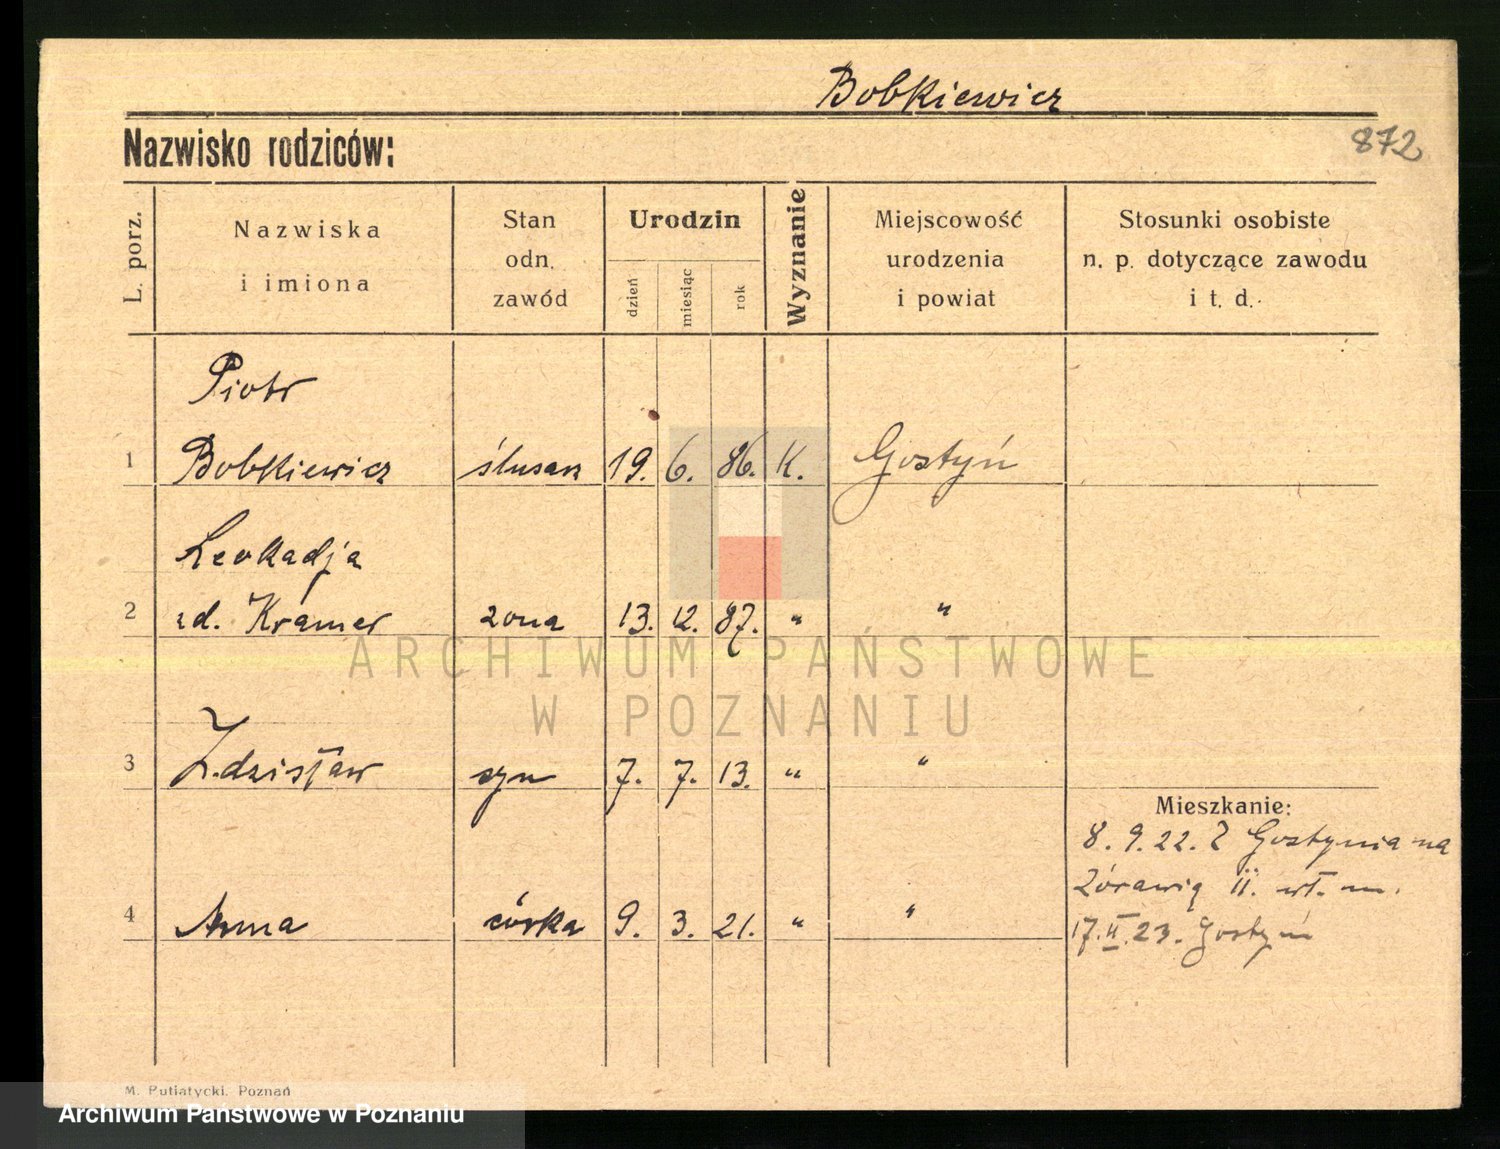 Bobkiewicz
Nazwisko rodziców:
872
L. porz.
Nazwiska
i imiona
Stan
odn.
zawód
Urodzin
dzień
miesiąc
rok
Wyznanie
Miejscowość
urodzenia
i powiat
Stosunki osobiste
n. p. dotyczące zawodu
i t. d.
Piotr
1 Bobkiewicz ślusarz 19. 6. 86. K. Gostyń
Leokadja
2 zd. Kramer żona 13. 12. 87. " "
3 Zdzisław syn 7. 7. 13. " "
Mieszkanie:
8. 9. 22. Z Gostynia na
Żórawią II. wł. m.
4 Anna córka 9. 3. 21. " "
17.II.23. Gostyń
ARCHIWUM PAŃSTWOWE
W POZNANIU
M. Putiatycki. Poznań
Archiwum Państwowe w Poznaniu